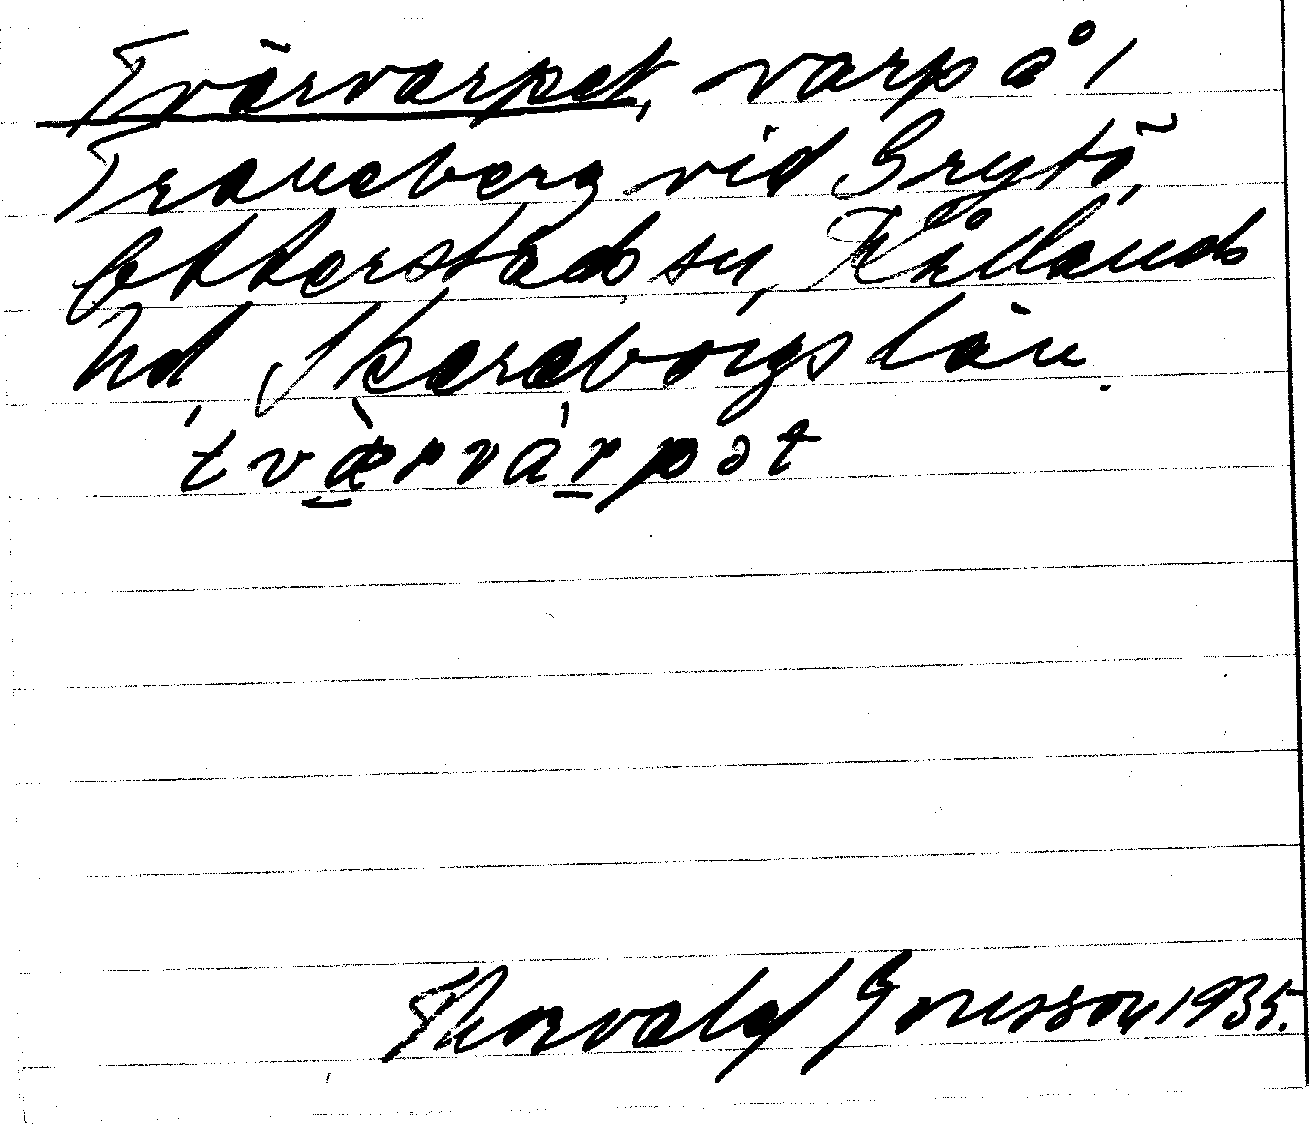 Tvärvarpet, varp å 1
Traneberg vid Grytö,
Otterstads sn, Kållands
hd, Skaraborgs län.
t v æ r v a r p ə t
Thorvald Jonsson 1935.